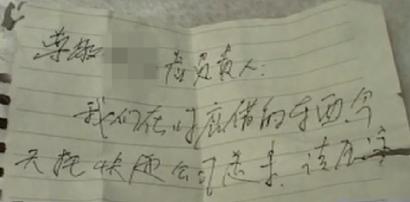 尊敬 店负责人:
我们在 店借的东西今
天托快递公司送来,请